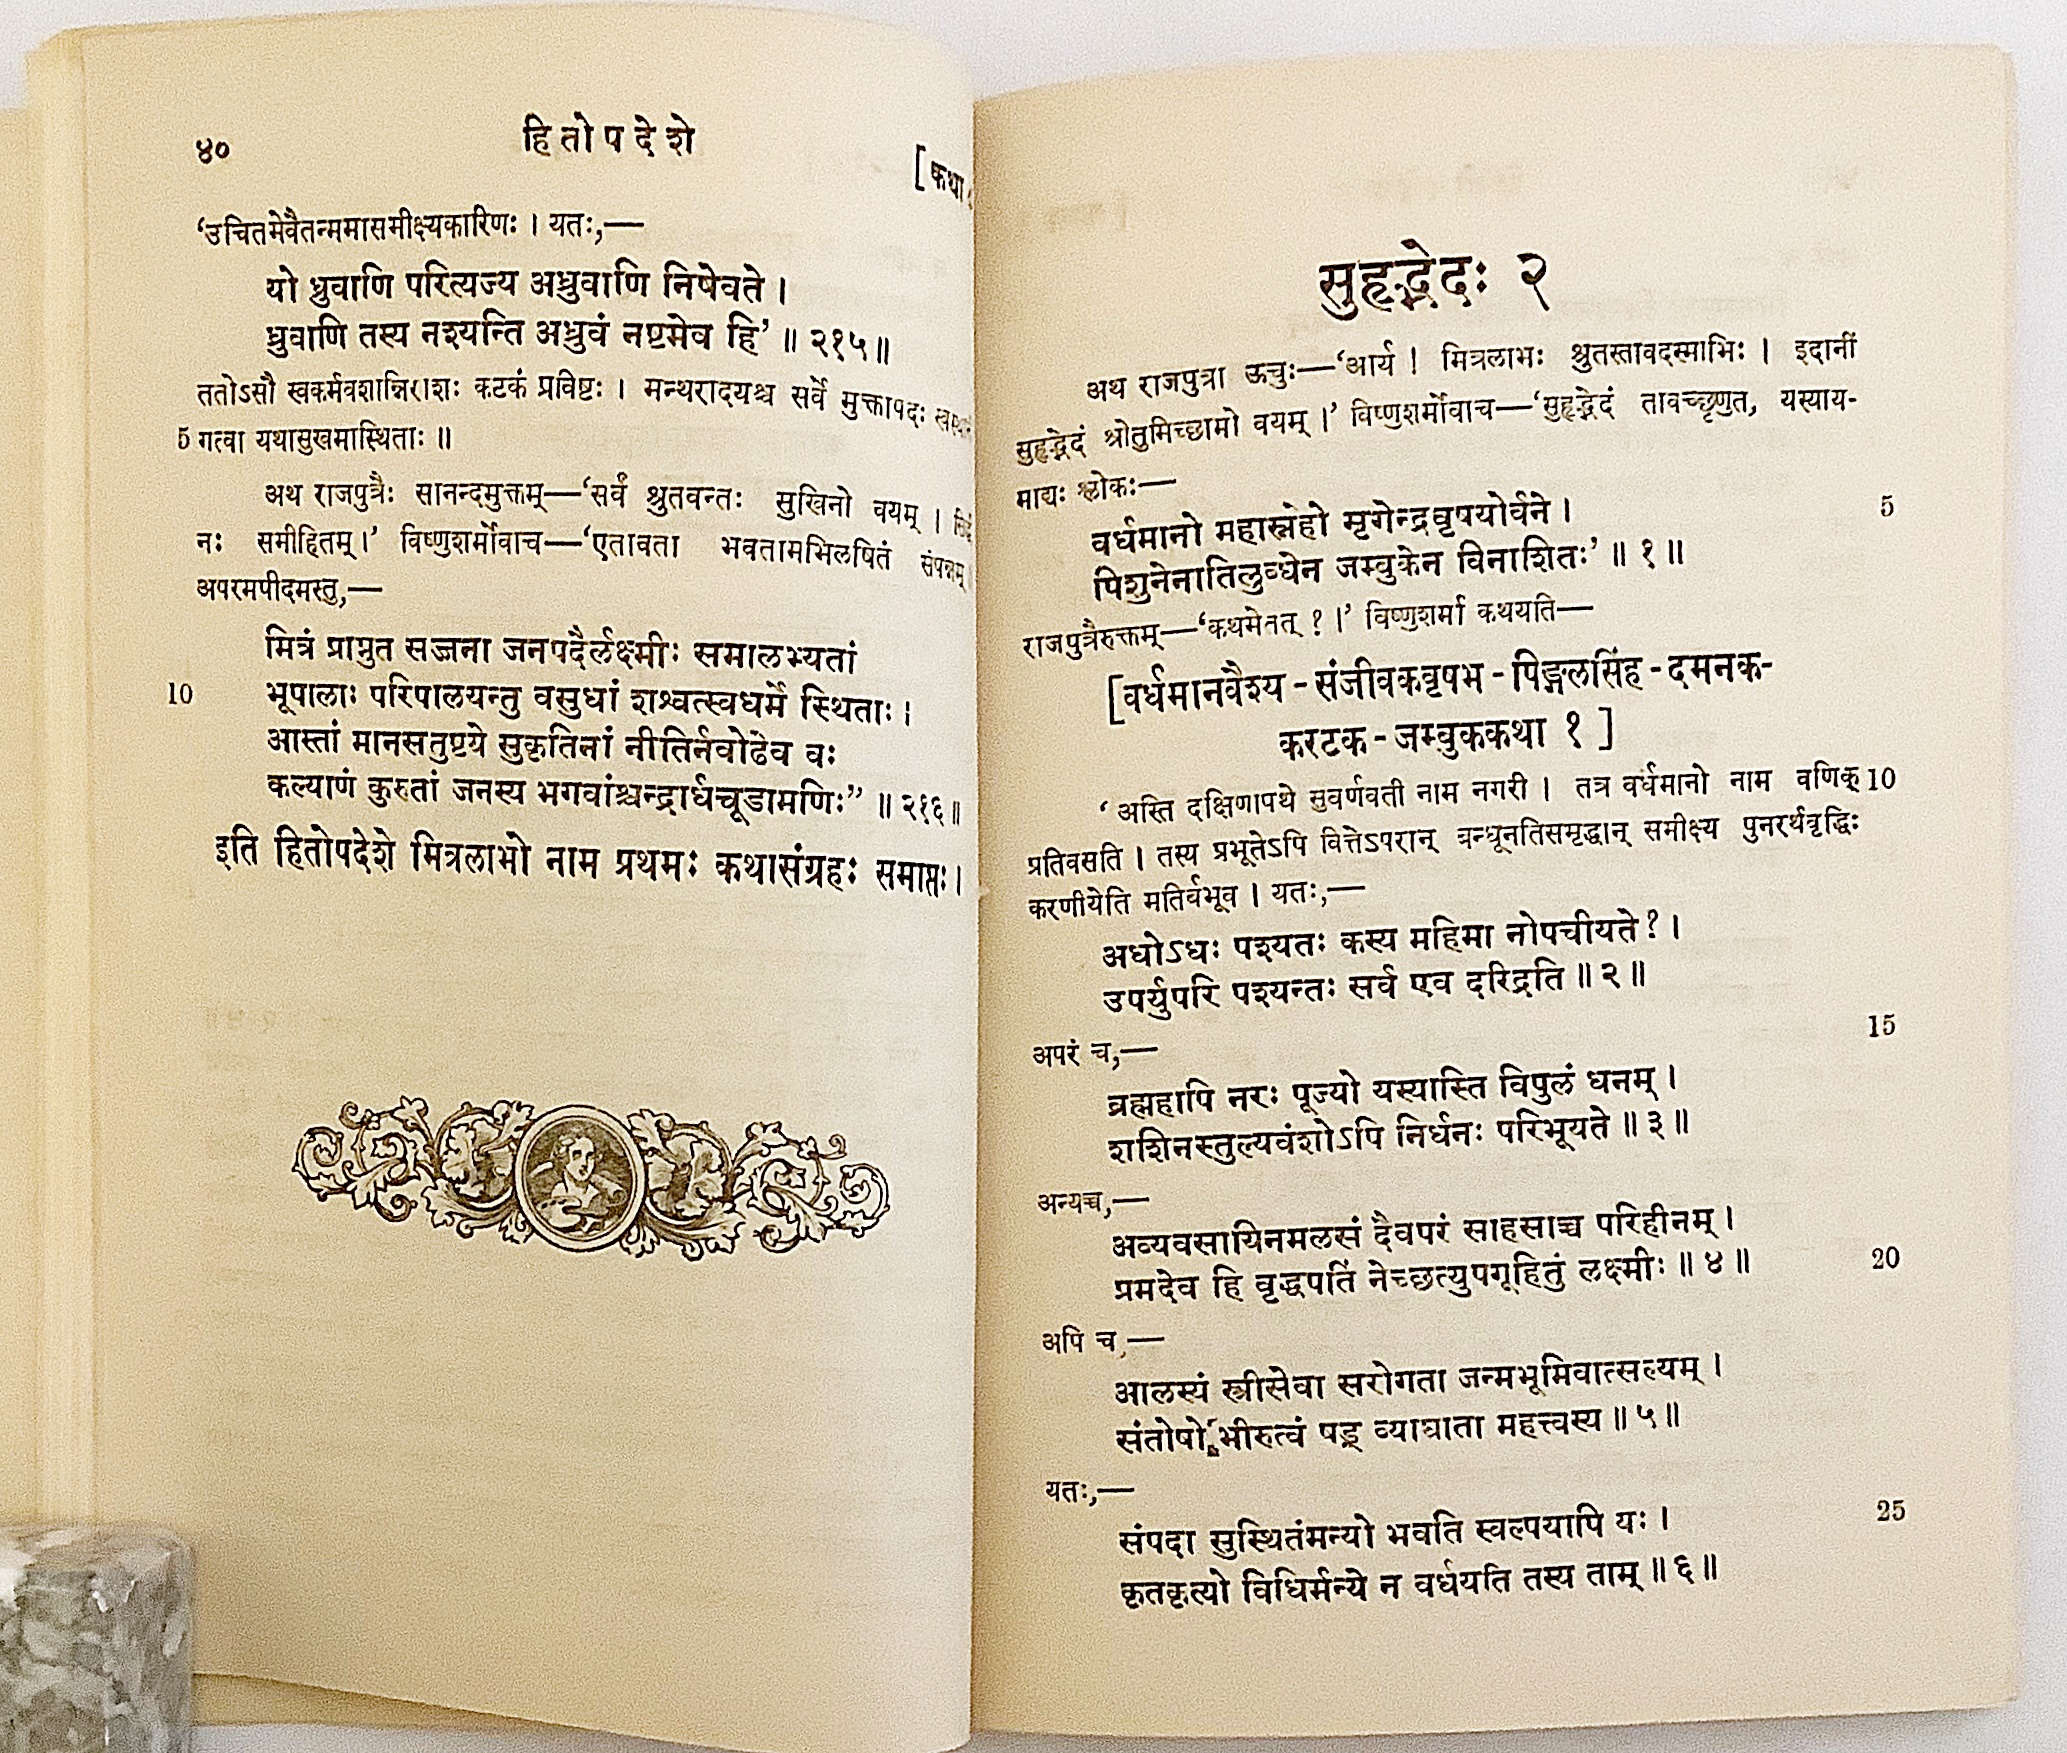 ४०
हितोपदेशे
[कथा
‘उचितमेवैतन्ममासमीक्ष्यकारिणः । यतः,—
यो ध्रुवाणि परित्यज्य अध्रुवाणि निषेवते ।
ध्रुवाणि तस्य नश्यन्ति अध्रुवं नष्टमेव हि’ ॥ २१५॥
ततोऽसौ स्वकर्मवशान्निराशः कटकं प्रविष्टः । मन्थरादयश्च सर्वे मुक्तापदः
5 गत्वा यथासुखमास्थिताः ॥
अथ राजपुत्रैः सानन्दमुक्तम्—‘सर्वं श्रुतवन्तः सुखिनो वयम् ।
नः समीहितम् ।’ विष्णुशर्मोवाच—‘एतावता भवतामभिलषितं संपन्नम्
अपरमपीदमस्तु,—
मित्रं प्राप्नुत सज्जना जनपदैर्लक्ष्मीः समालभ्यतां
10 भूपालाः परिपालयन्तु वसुधां शश्वत्स्वधर्मे स्थिताः ।
आस्तां मानसतुष्टये सुकृतिनां नीतिर्नवोढेव वः
कल्याणं कुरुतां जनस्य भगवांश्चन्द्रार्धचूडामणिः” ॥ २१६॥
इति हितोपदेशे मित्रलाभो नाम प्रथमः कथासंग्रहः समाप्तः ।
सुहृद्भेदः २
अथ राजपुत्रा ऊचुः—‘आर्य ! मित्रलाभः श्रुतस्तावदस्माभिः । इदानीं
सुहृद्भेदं श्रोतुमिच्छामो वयम् ।’ विष्णुशर्मोवाच—‘सुहृद्भेदं तावच्छृणुत, यस्याय-
माद्यः श्लोकः—
वर्धमानो महास्नेहो मृगेन्द्रवृषयोर्वने । 5
पिशुनेनातिलुब्धेन जम्बुकेन विनाशितः’ ॥ १ ॥
राजपुत्रैरुक्तम्—‘कथमेतत् ? ।’ विष्णुशर्मा कथयति—
[वर्धमानवैश्य - संजीवकवृषभ - पिङ्गलसिंह - दमनक-
करटक - जम्बुककथा १ ]
‘ अस्ति दक्षिणापथे सुवर्णवती नाम नगरी । तत्र वर्धमानो नाम वणिक् 10
प्रतिवसति । तस्य प्रभूतेऽपि वित्तेऽपरान् बन्धूनतिसमृद्धान् समीक्ष्य पुनरर्थवृद्धिः
करणीयेति मतिर्बभूव । यतः,—
अधोऽधः पश्यतः कस्य महिमा नोपचीयते ? ।
उपर्युपरि पश्यन्तः सर्व एव दरिद्रति ॥ २ ॥
अपरं च,— 15
ब्रह्महापि नरः पूज्यो यस्यास्ति विपुलं धनम् ।
शशिनस्तुल्यवंशोऽपि निर्धनः परिभूयते ॥ ३ ॥
अन्यच्च,—
अव्यवसायिनमलसं दैवपरं साहसाच्च परिहीनम् ।
प्रमदेव हि वृद्धपतिं नेच्छत्युपगूहितुं लक्ष्मीः ॥ ४ ॥ 20
अपि च,—
आलस्यं स्त्रीसेवा सरोगता जन्मभूमिवात्सल्यम् ।
संतोषो भीरुत्वं षड् व्याघाता महत्त्वस्य ॥ ५ ॥
यतः,—
संपदा सुस्थितंमन्यो भवति स्वल्पयापि यः । 25
कृतकृत्यो विधिर्मन्ये न वर्धयति तस्य ताम् ॥ ६ ॥